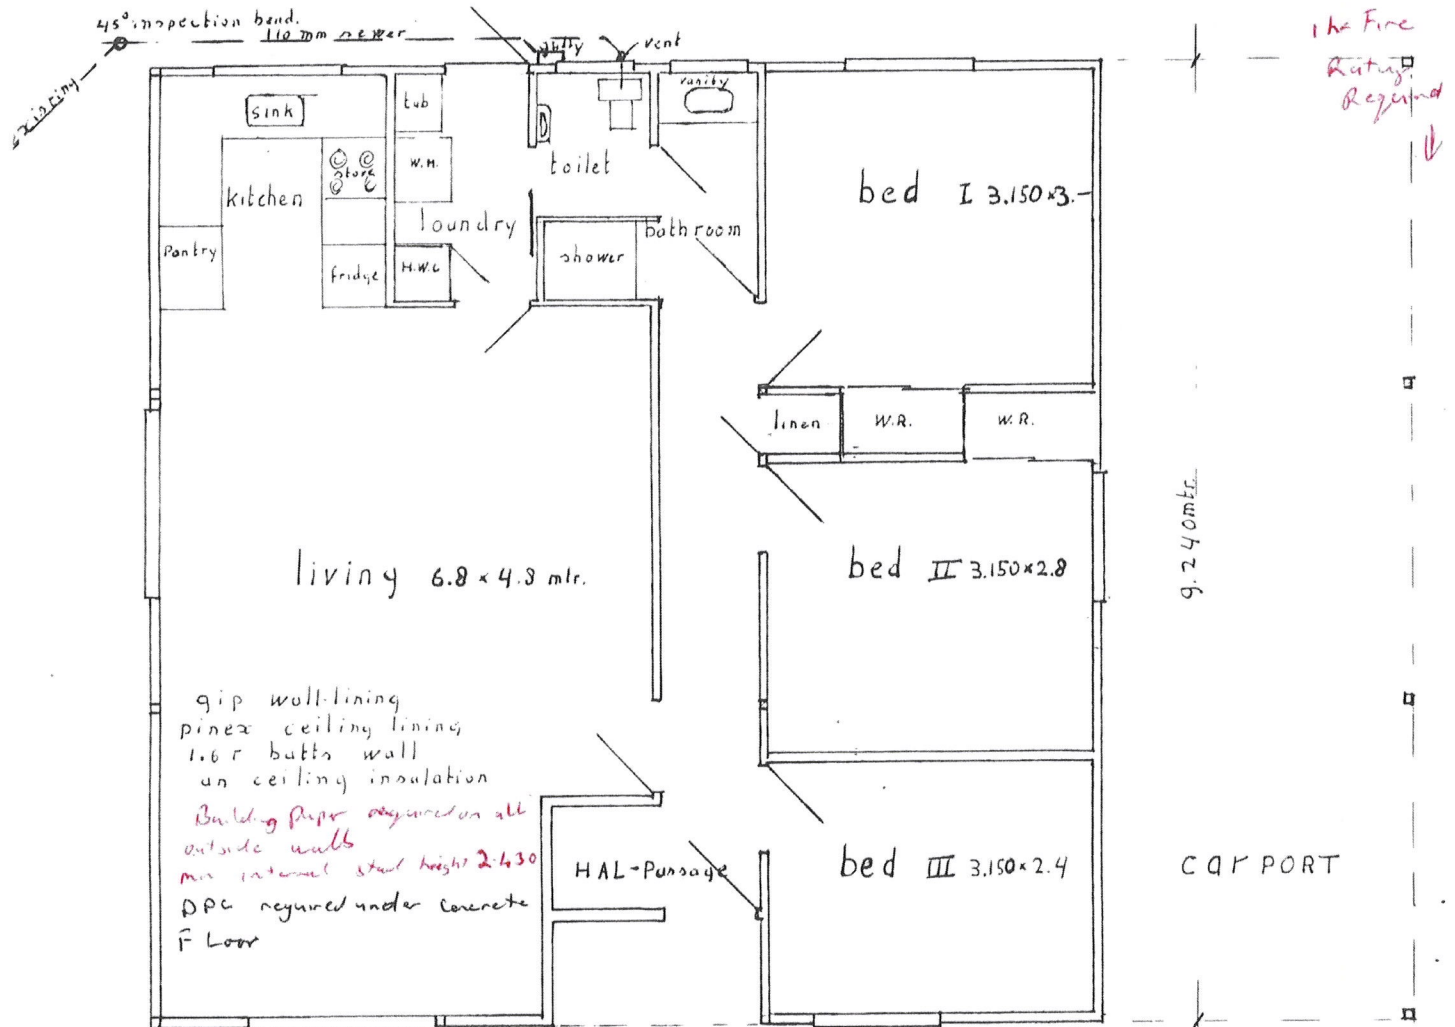 45° inspection bend.
110 mm sewer
gully
vent
existing
1 hr Fire
Rating
Required
sink
tub
vanity
W.M.
stove
kitchen
toilet
bed I 3.150×3.-
loundry
bathroom
Pantry
fridge
H.W.C
shower
linen
W.R.
W.R.
9.240mtr.
living 6.8 × 4.8 mtr.
bed II 3.150×2.8
gip wall-lining
pinex ceiling lining
1.6 r batts wall
an ceiling insulation
Building Paper required on all
outside walls
min internal stud height 2.430
DPC required under concrete
Floor
HAL-Passage
bed III 3.150×2.4
carPORT